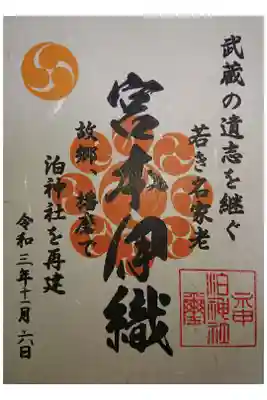 武蔵の遺志を継ぐ
若き名家老
宮本伊織
故郷、播磨で
泊神社を再建
令和三年十一月二六日
泊神社